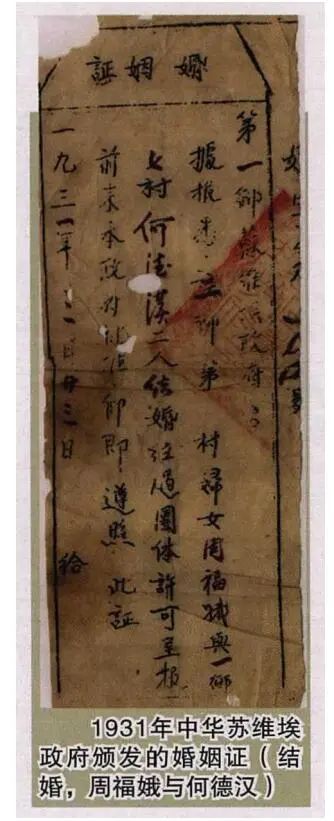 婚姻証
第一鄉蘇維埃政府
據报 鄉第 村婦女周福娥與一鄉
七村何德漢二人結婚经過團体許可呈报
前來本政府批准仰即遵照此証
一九三一年 月廿三日 給
1931年中华苏维埃
政府颁发的婚姻证（结
婚，周福娥与何德汉）